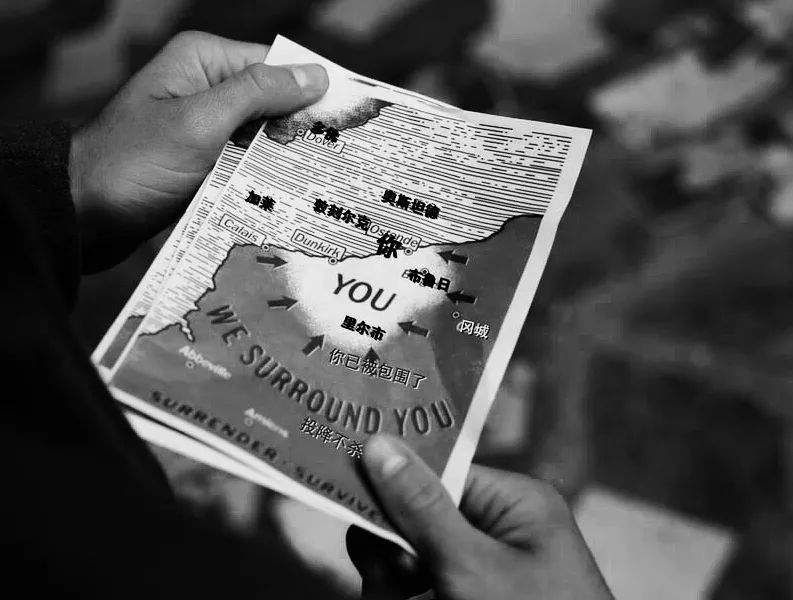 多佛
Dover
加莱
Calais
敦刻尔克
Dunkirk
奥斯坦德
Ostende
你
YOU
布鲁日
冈城
里尔布
你已被包围了
WE SURROUND YOU
Abbeville
Amiens
投降不杀
SURRENDER · SURVIVE